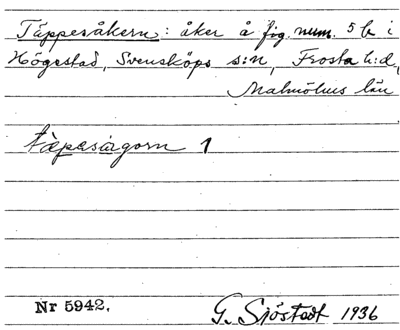 Täppesåkern: åker å fig. num. 5 b i
Högestad, Svensköps s:n, Frosta h:d,
Malmöhus län
tæpasågorn 1
Nr 5942.
G. Sjöstedt 1936